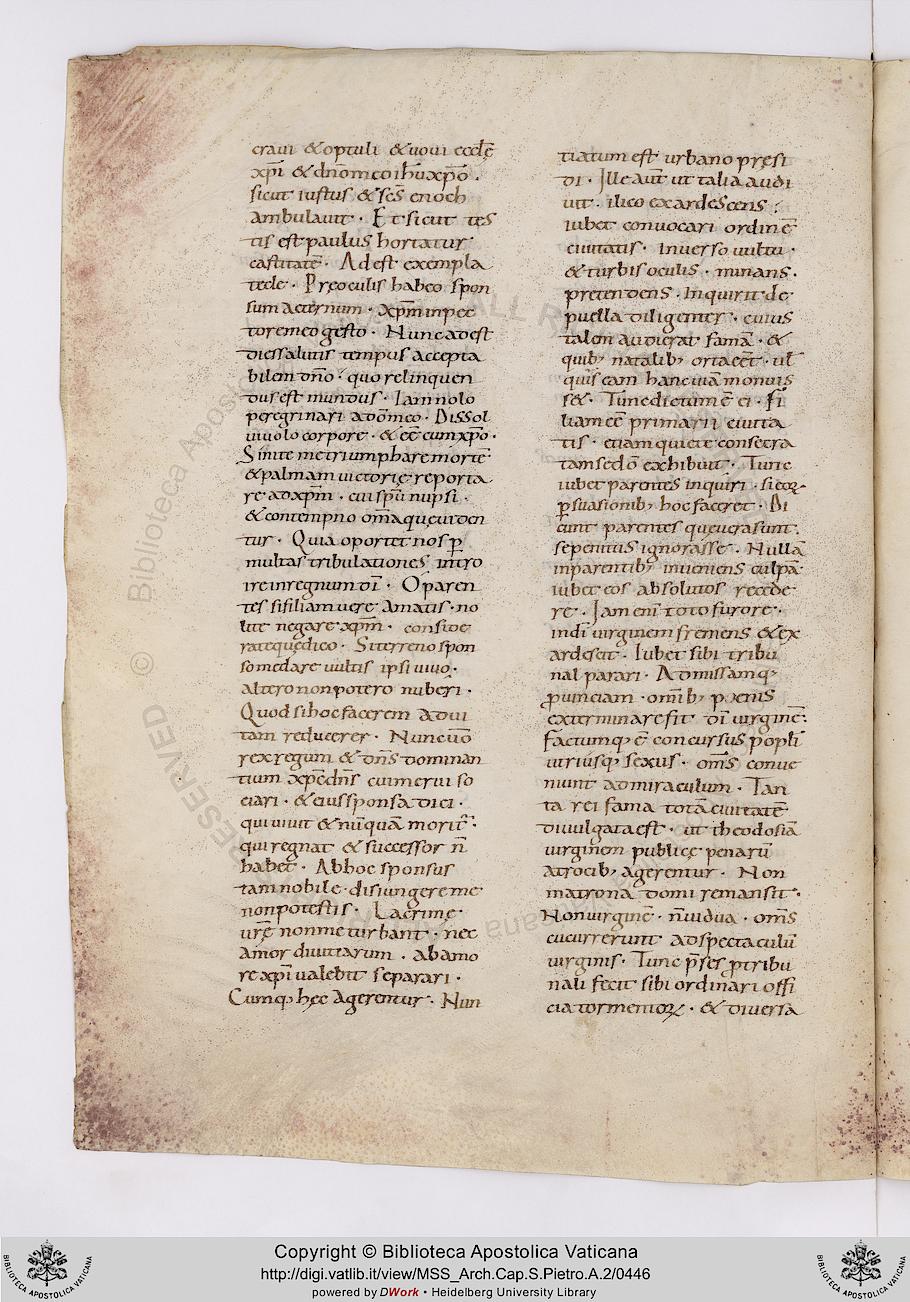 craui & optuli & uoui eccłę
xp̄i & dnomeoihūxpō ·
sicut iustus & scs̄ enoch
ambulauit · Et sicut tes
tis est paulus hortatur
castitatē · Adest exempla
tecle · Pręoculis habeo spon
sum aeternum · xp̄m inpec
toremeo gesto · Nunc adest
dies salutis tempus accepta
bilem dnō · quo relinquen
dus est mundus · Iam nolo
peregrinari adōmeo · Dissol
ui uolo corpore · & eē cum xpō ·
Sinite me triumphare mortē
& palmam uictorię reporta
re ad xp̄m · cui spū nupsi ·
& contempno omāquę uiden
tur · Quia oportet nos p̄
multas tribulationes intro
ire in regnum dī · O paren
tes si filiam uere amatis · no
lite negare xp̄m · conside
rate quę dico · Si terreno spon
so me dare uultis ipsi uiuo ·
altero non potero nuberi ·
Quod si hoc facerem ad ui
tam reducerer · Nunc uō
rex regum & dn̄s dominan
tium xp̄c dn̄s cui merui so
ciari · & eius sponsa dici ·
qui uiuit & nūquā morit̄ ·
qui regnat & successor n̄
habet · Ab hoc sponsus
tam nobile · disiungere me
non potestis · Lacrimę ·
urę non me turbant · nec
amor diuitiarum · ab amo
re xp̄i ualebit separari ·
Cumq; hęc agerentur · Nun
tiatum est urbano pręsi
di · Ille aut̄ ut talia audi
uit · ilico exardescens ·
iubet conuocari ordinē
ciuitatis · Inuerso uultu ·
& turbis oculis · minans ·
pretendens · Inquirit de
puella diligenter · cuius
talem audierat famā · &
quib; natalib; orta eēt · ul̄
quis eam hanc uiā monuis
s& · Tunc dictum ē ei · Fi
liam eē primarii ciuita
tis · etiam quiete consecra
tam se dō exhibuit · Tunc
iubet parentes inquiri · si eoꝝ
p̱suasionib; hoc faceret · Di
cunt parentes que uera sunt ·
se penitus ignorasse · Nullā
in parentib; inueniens culpā
iubet eos absolutos recede
re · Iam enī toto furore ·
indī uirginem fremens & ex
ardescit · Iubet sibi tribu
nal parari · Admissamq;
puinciam · omīb; poenis
exterminare sit dī uirginē ·
Factumq; ē concursus popłi
utriusq; sexus · omṡ conue
niunt ad miraculum · Tan
ta rei fama totā ciuitatē
diuulgata est · ut theodosiā
uirginem publicę penarū
atrocib; agerentur · Non
matrona domi remansit ·
Non uirginē · n̄ uidua · omṡ
cucurrerunt ad spectaculū
uirginis · Tunc p̄ses p̱ tribu
nali fecit sibi ordinari offi
cia tormentoꝝ · & diuersa
Copyright © Biblioteca Apostolica Vaticana
http://digi.vatlib.it/view/MSS_Arch.Cap.S.Pietro.A.2/0446
powered by DWork • Heidelberg University Library